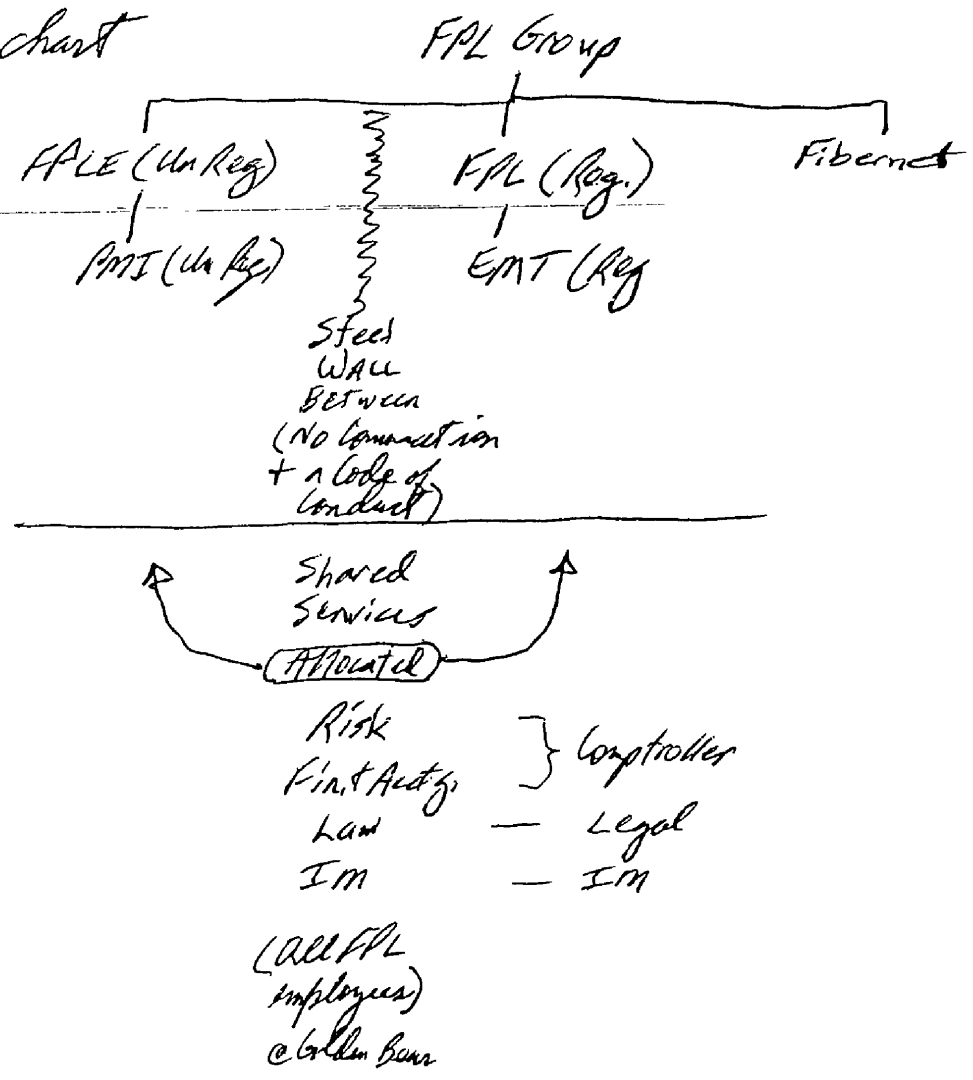 chart
FPL Group
FPLE (UnReg)
FPL (Reg.)
Fibernet
PMI (UnReg)
EMT (Reg
Steel
WALL
BETWEEN
(No
+ a Code of
Conduct)
Shared
Services
Allocated
Risk
Fin. + Acctg.
} Comptroller
Law — Legal
IM — IM
(all FPL
employees)
@ Golden